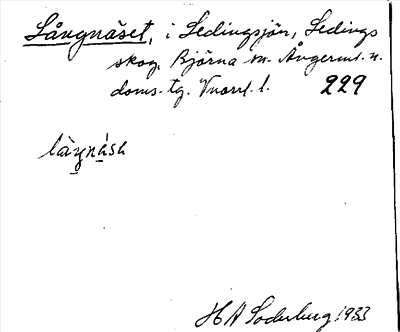 Långnäset, i Ledingsjön, Ledings
skog, Björna sn. Ångerml. n.
doms. tg. Vnorrl. l. 229
là̱yna̱sa
H A Söderberg 1933